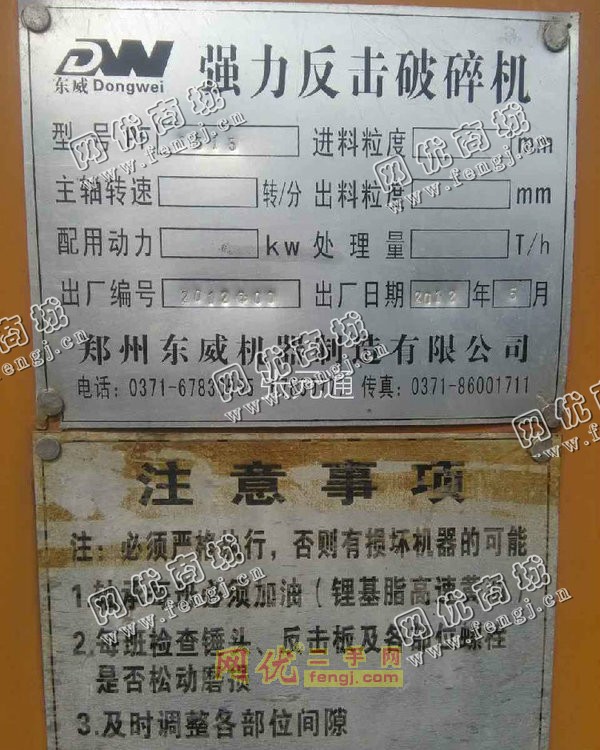 DW 东威 Dongwei 强力反击破碎机
型号 进料粒度 mm
主轴转速 转/分 出料粒度 mm
配用动力 kw 处理量 T/h
出厂编号 出厂日期 2012 年 5 月
郑州东威机器制造有限公司
电话: 传真: 0371-86001711
注意事项
注: 必须严格执行，否则有损坏机器的可能
1.轴承 班必须加油（锂基脂高速
2.每班检查锤头、反击板及各部位螺栓
是否松动磨损
3.及时调整各部位间隙
网优商城
www.fengj.com
网优二手网
fengj.com